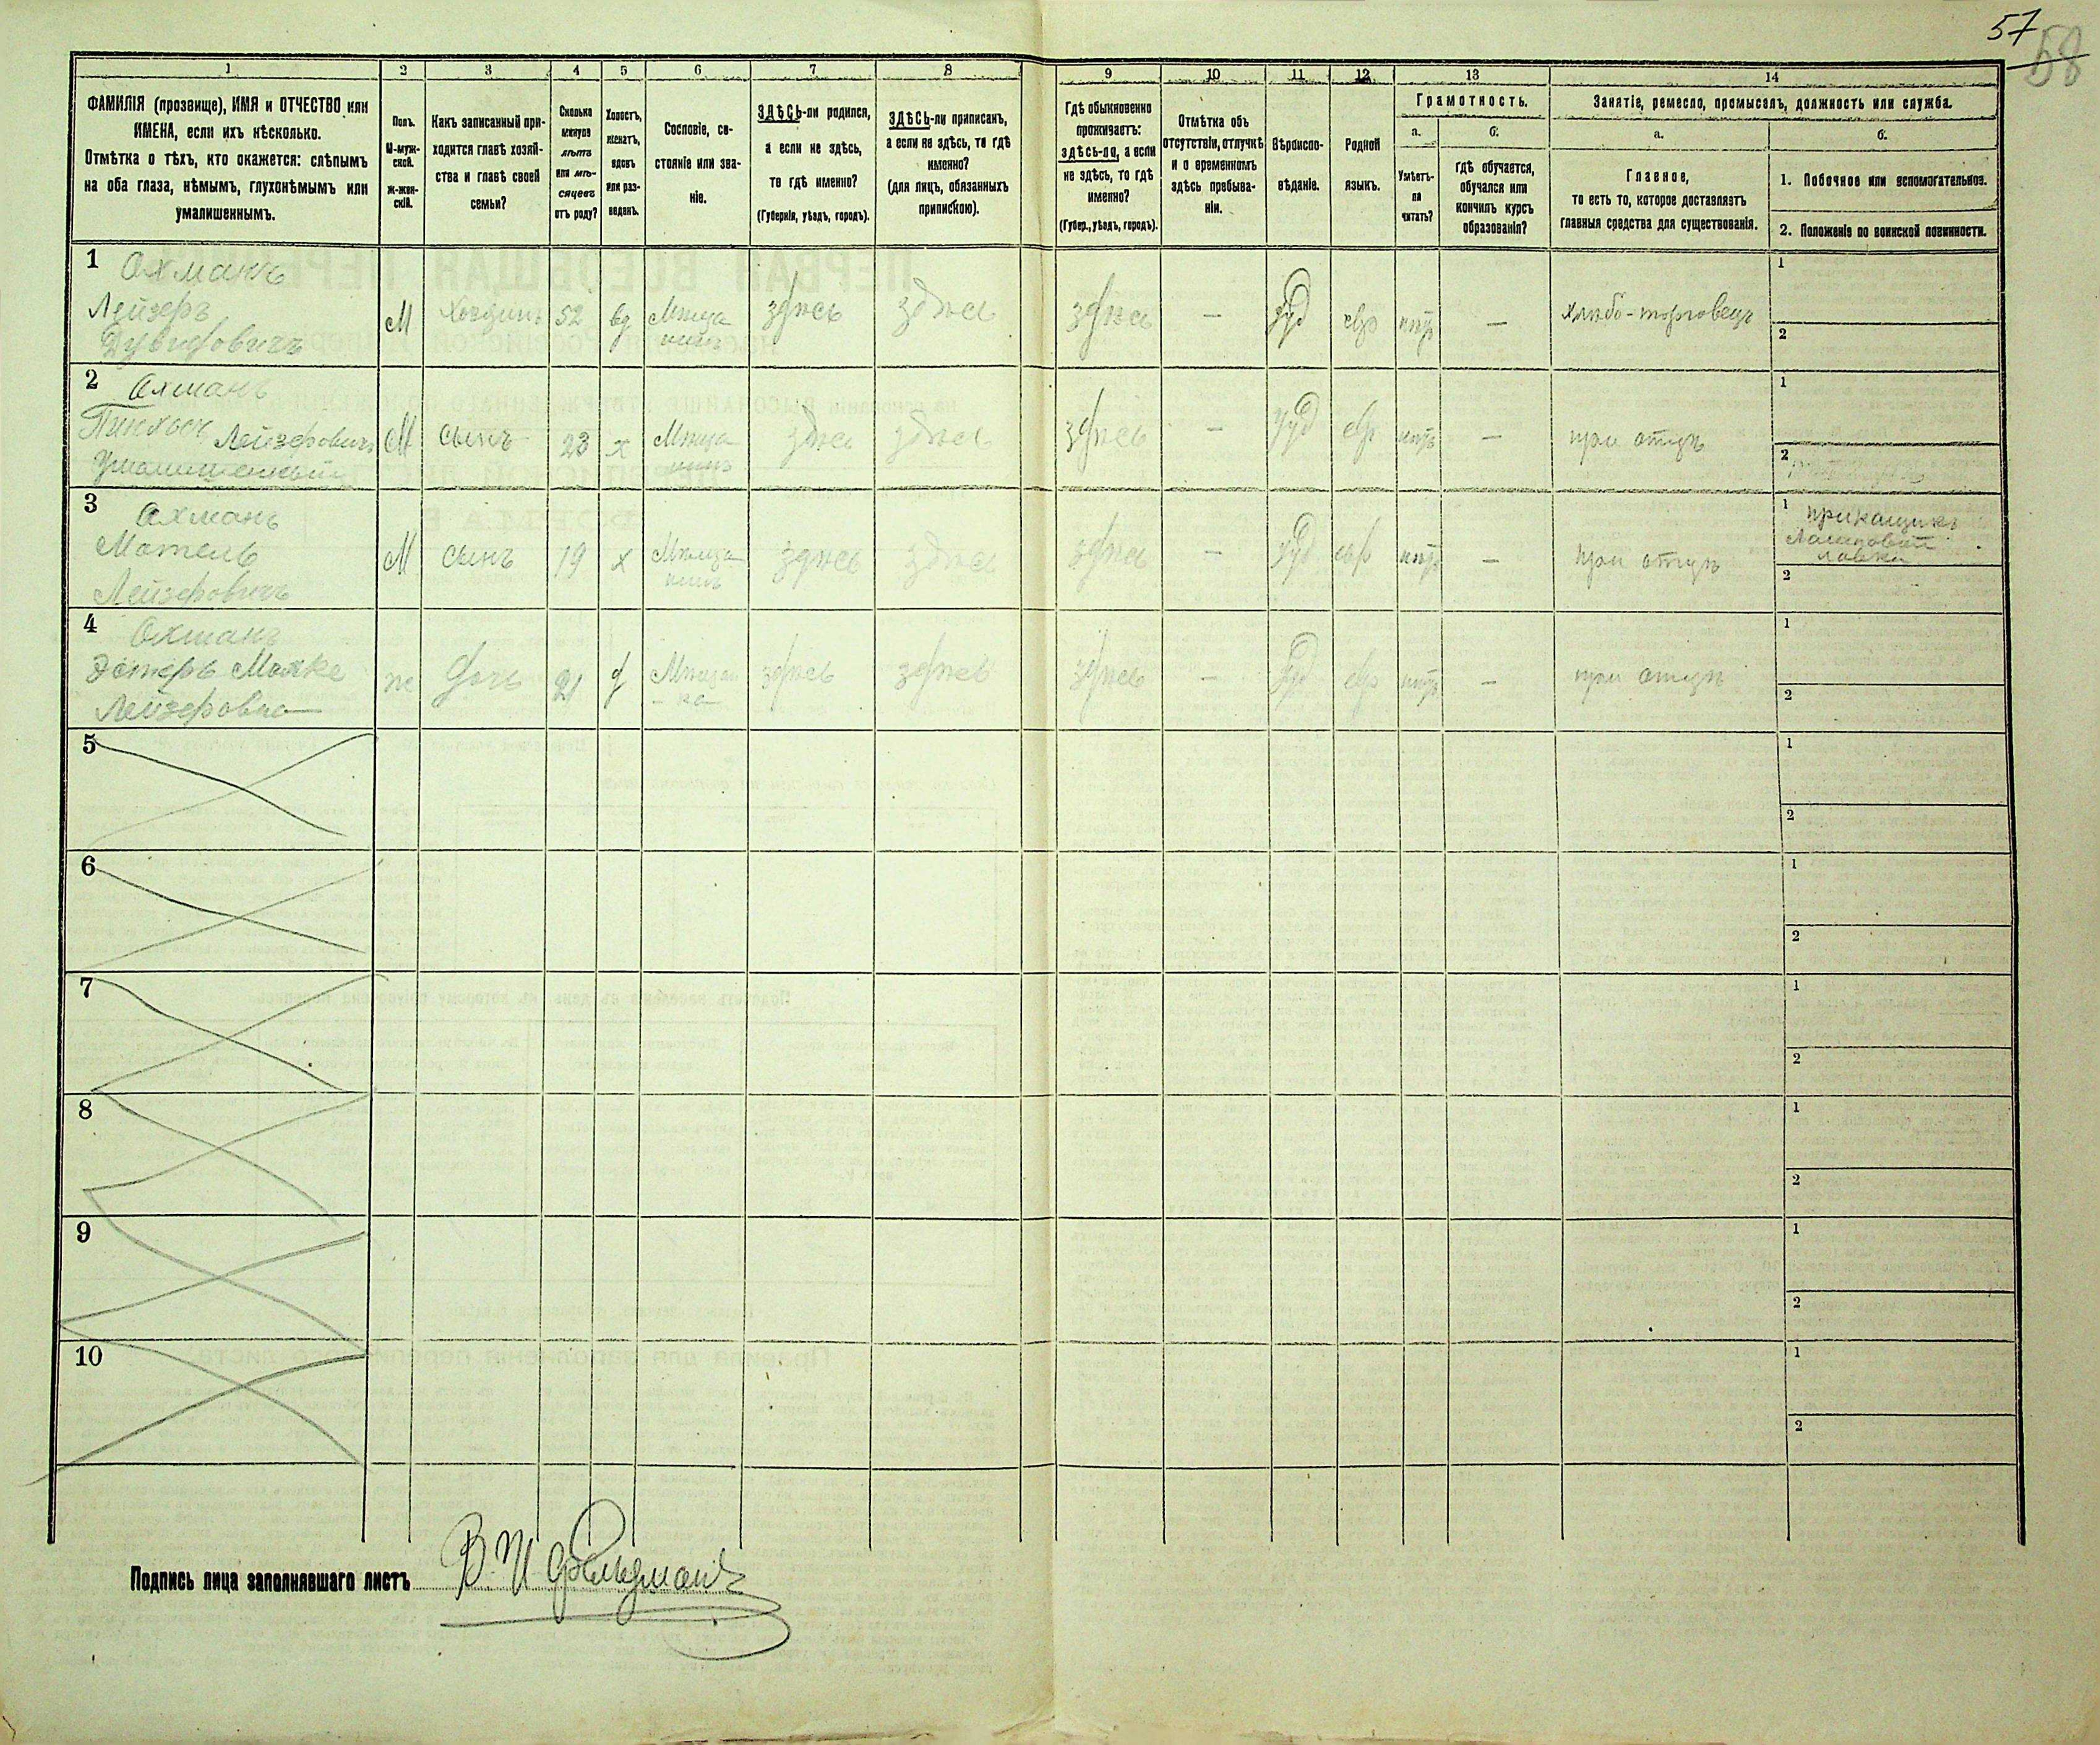 57
58
1
2
3
4
5
6
7
8
9
10
11
12
13
14
ФАМИЛІЯ (прозвище), ИМЯ и ОТЧЕСТВО или
ИМЕНА, если ихъ нѣсколько.
Отмѣтка о тѣхъ, кто окажется: слѣпымъ
на оба глаза, нѣмымъ, глухонѣмымъ или
умалишеннымъ.
Полъ.
М-муж-
ской.
Ж-жен-
скій.
Какъ записанный при-
ходится главѣ хозяй-
ства и главѣ своей
семьи?
Сколько
минуло
лѣтъ
или мѣ-
сяцевъ
отъ роду?
Холостъ,
женатъ,
вдовъ
или раз-
веденъ.
Сословіе, со-
стояніе или зва-
ніе.
ЗДѢСЬ-ли родился,
а если не здѣсь,
то гдѣ именно?
(Губернія, уѣздъ, городъ).
ЗДѢСЬ-ли приписан,
а если не здѣсь, то гдѣ
именно?
(для лицъ, обязанныхъ
припискою).
Гдѣ обыкновенно
проживаетъ:
здѣсь-ли, а если
не здѣсь, то гдѣ
именно?
(Губер., уѣздъ, городъ).
Отмѣтка объ
отсутствіи, отлучкѣ
и о временномъ
здѣсь пребыва-
ніи.
Вѣроиспо-
вѣданіе.
Родной
языкъ.
Грамотность.
а.
б.
Умѣетъ-
ли
читать?
гдѣ обучается,
обучался или
кончилъ курсъ
образованія?
Занятіе, ремесло, промыселъ, должность или служба.
а.
б.
Главное,
то есть то, которое доставляетъ
главныя средства для существованія.
1. Побочное или вспомогательное.
2. Положеніе по воинской повинности.
1
Охманъ
Лейзеръ
Дувидовичъ
М
Хозяинъ
52
вд
Мѣща
нинъ
здѣсь
здѣсь
здѣсь
—
іуд
евр
нѣтъ
—
хлѣбо-торговецъ
1
2
2
Охманъ
Пинхосъ Лейзеровичъ
умалишенный
М
сынъ
23
х
Мѣща
нинъ
здѣсь
здѣсь
здѣсь
—
іуд
евр
нѣтъ
—
при отцѣ
1
2
3
Охманъ
Мотель
Лейзеровичъ
М
сынъ
19
х
Мѣща
нинъ
здѣсь
здѣсь
здѣсь
—
іуд
евр
нѣтъ
—
при отцѣ
1 прикащикъ
лавки
2
4
Охманъ
Эстеръ Малке
Лейзеровна
ж
дочь
21
д
Мѣщан
-ка
здѣсь
здѣсь
здѣсь
—
іуд
евр
нѣтъ
—
при отцѣ
1
2
5
1
2
6
1
2
7
1
2
8
1
2
9
1
2
10
1
2
Подпись лица заполнявшаго листъ В. И Фельдманъ